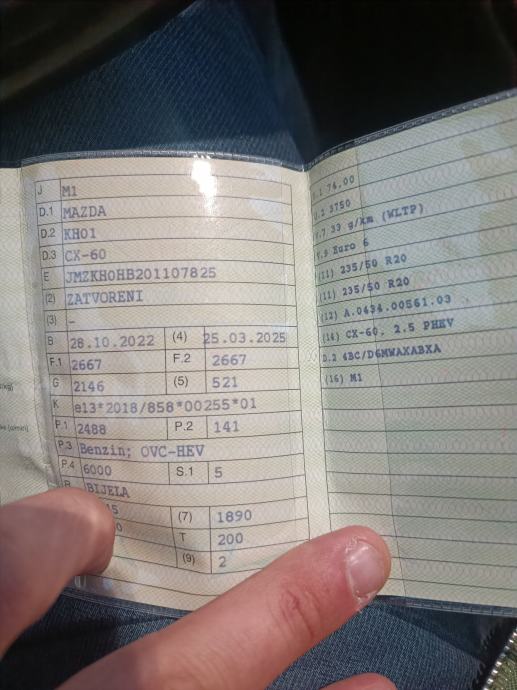 J M1
D.1 MAZDA
D.2 KH01
D.3 CX-60
E JMZKH0HB201107825
(2) ZATVORENI
(3) -
B 28.10.2022 (4) 25.03.2025
F.1 2667 F.2 2667
G 2146 (5) 521
K e13*2018/858*00255*01
P.1 2488 P.2 141
P.3 Benzin; OVC-HEV
P.4 6000 S.1 5
R BIJELA
(7) 1890
T 200
(9) 2
74.00
3750
33 g/km (WLTP)
Euro 6
(11) 235/50 R20
(11) 235/50 R20
(12) A.0494.00561.03
(14) CX-60, 2.5 PHEV
D.2 4BC/D6MWAXABXA
(16) M1